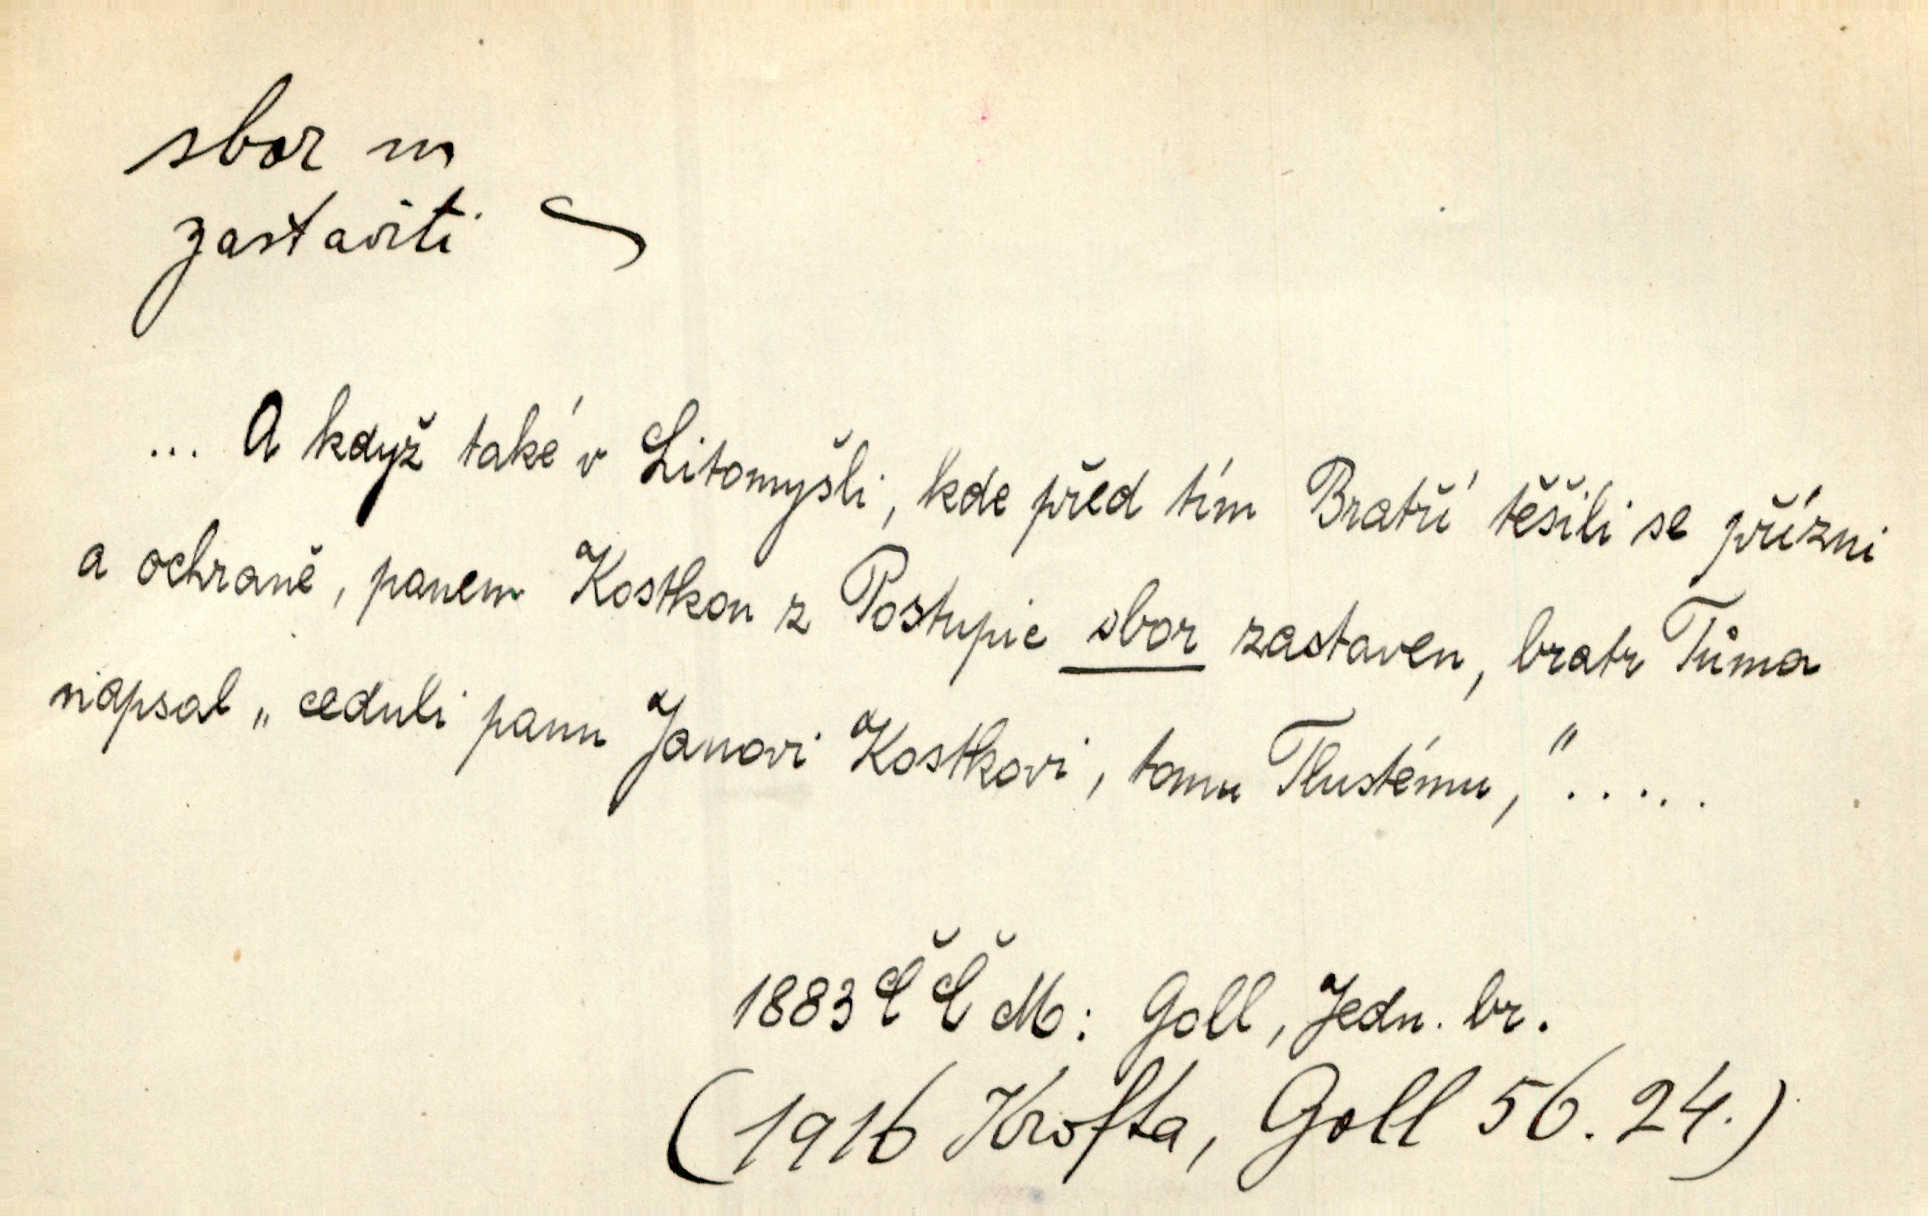 sbor m
zastaviti
... A když také v Litomyšli, kde před tím Bratří těšili se přízni
a ochraně, panem Kostkou z Postupic sbor zastaven, bratr Tůma
napsal „ceduli panu Janovi Kostkovi, tomu Tlustému,“.....
1883 ČČM: Goll, Jedn. br.
(1916 Krofta, Goll 56. 24.)